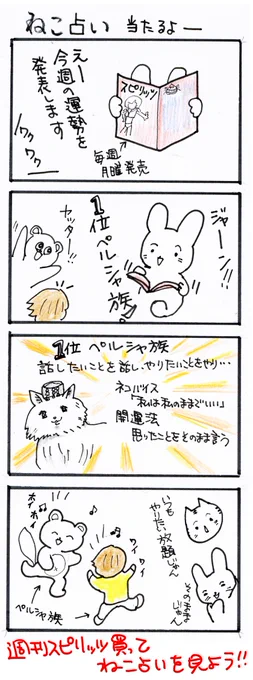 ねこ占い 当たるよー
えー
今週の運勢を
発表します
ワクワクー
スピリッツ
毎週
月曜発売
ジャーン!!
1位ペルシャ族。
ヤッター!!
1位 ペルシャ族
話したいことを話し、やりたいことをやり…
ネコバイス
「私は私のままでいい」
開運法
思ったことをそのまま言う
いつも
やりたい放題じゃん
そのまま
じゃん
ホイ
ホイ
ワイ
ワイ
ペルシャ族
週刊スピリッツ買って
ねこ占いを見よう!!